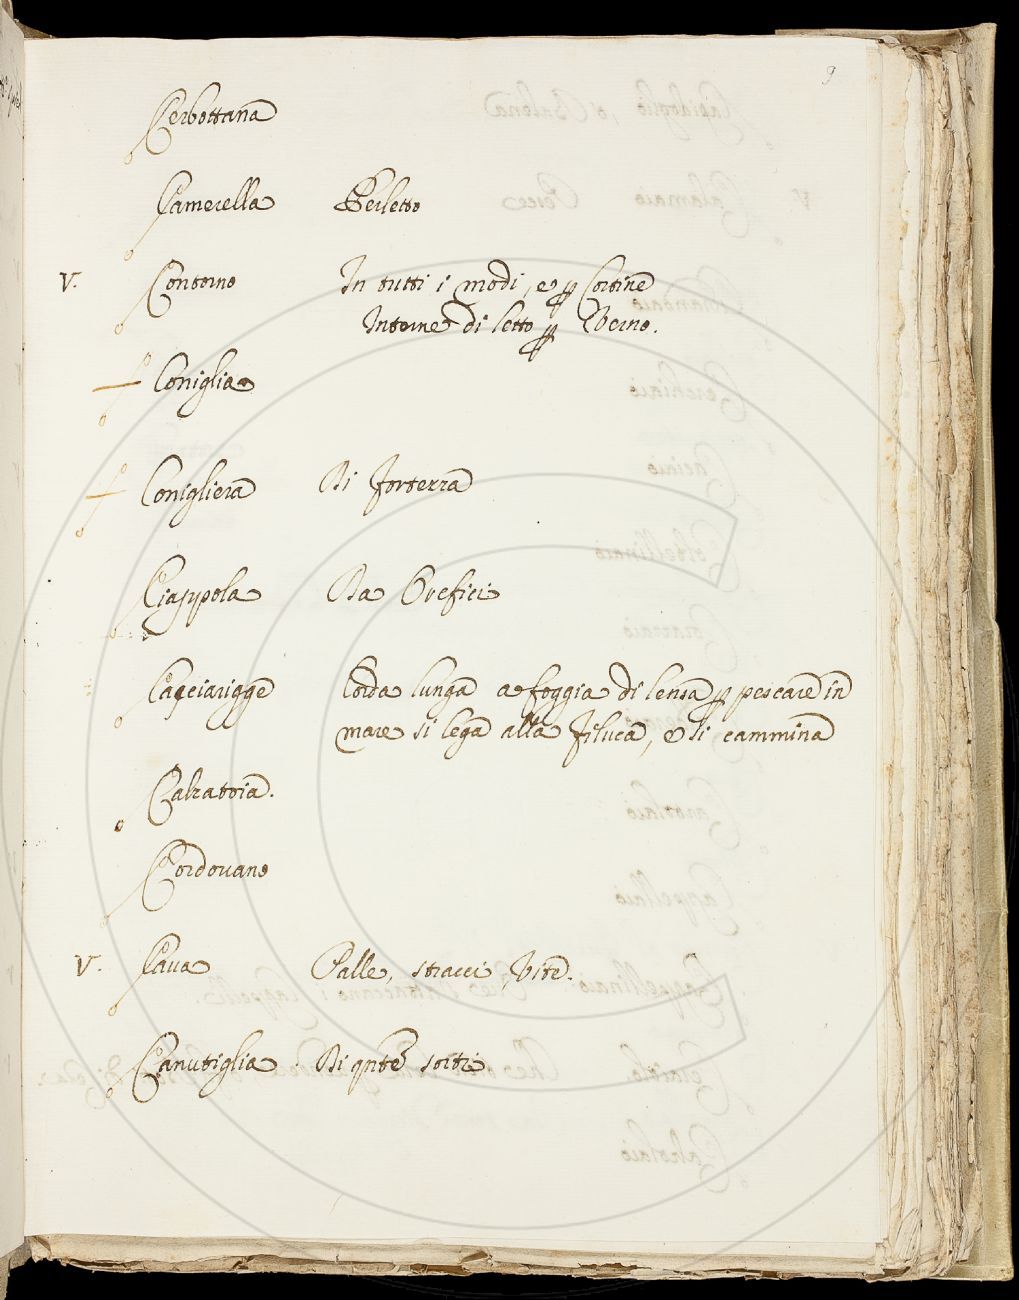 9
Cerbottana
Camerella Per letto
V. Contorno In tutti i modi, e p Cortine
Intorne di letto p Verno.
Coniglia
Conigliera Di forterra
Ciappola Da Orefici
Cacciarigge Corda lunga a foggia di lensa p pescare in
mare si lega alla filuca, e si cammina
Calzattoia.
Cordovano
V. Cava Palle, stracci, vite.
Canutiglia Di qnte sorti